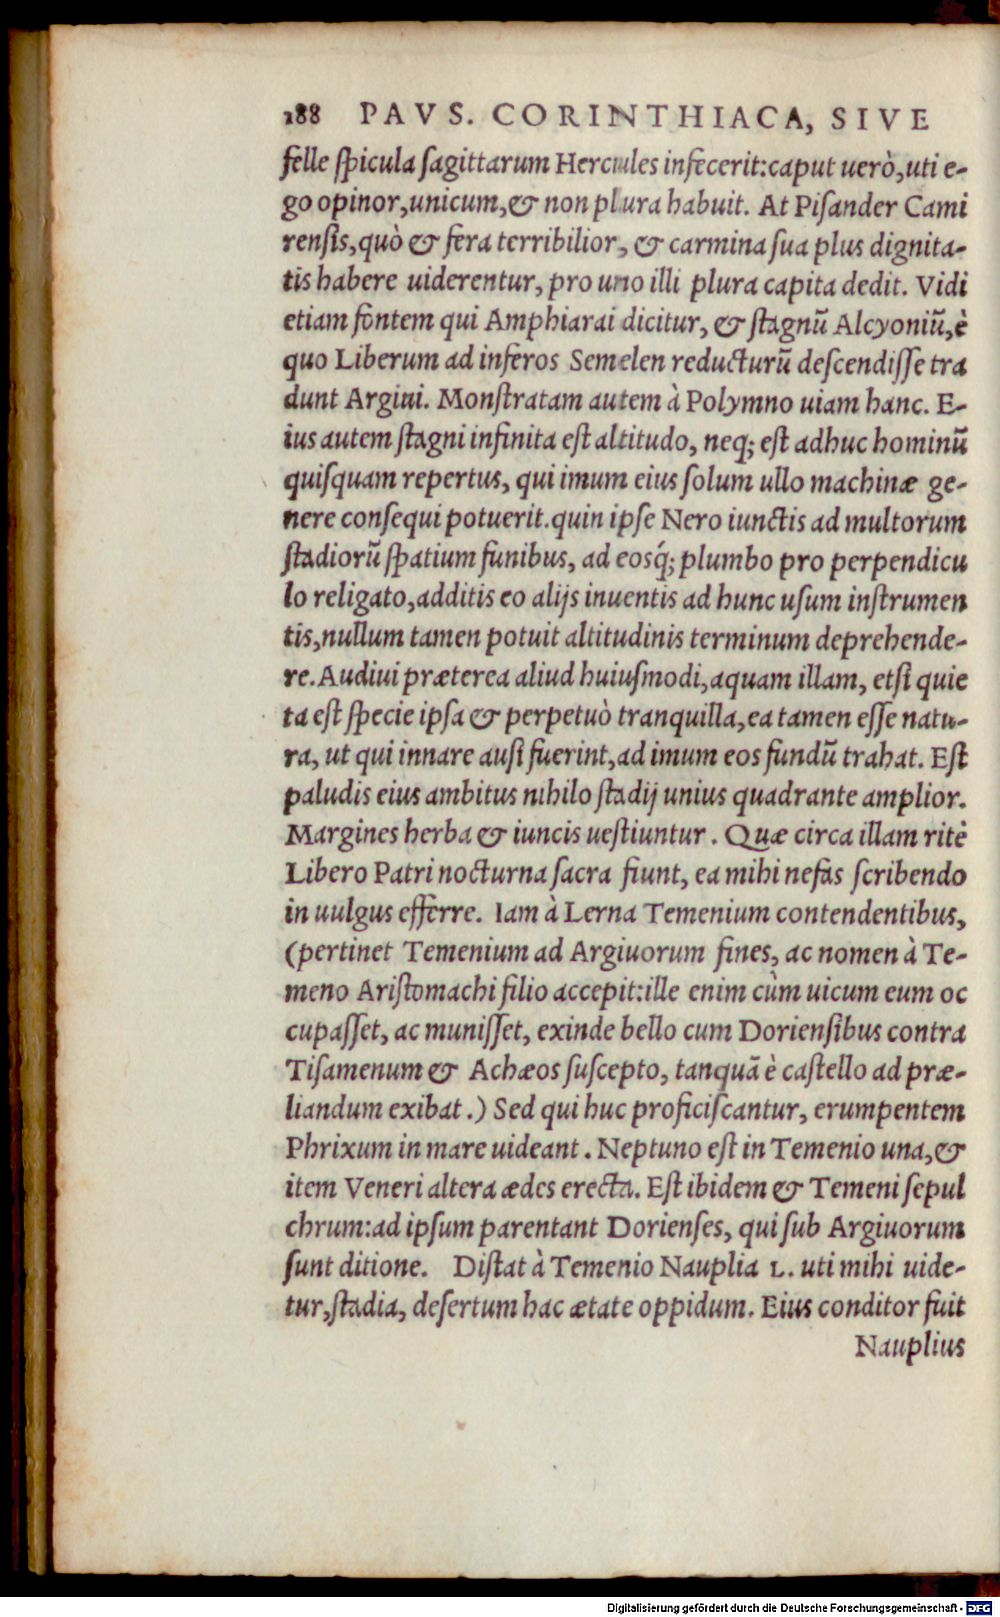 188 PAVS. CORINTHIACA, SIVE
felle ſpicula ſagittarum Hercules infecerit:caput uerò,uti e-
go opinor,unicum,& non plura habuit. At Piſander Cami
renſis,quò & fera terribilior, & carmina ſua plus dignita-
tis habere uiderentur, pro uno illi plura capita dedit. Vidi
etiam fontem qui Amphiarai dicitur, & ſtagnũ Alcyoniũ,è
quo Liberum ad inferos Semelen reducturũ deſcendiſſe tra
dunt Argiui. Monſtratam autem à Polymno uiam hanc. E-
ius autem ſtagni infinita eſt altitudo, neq; eſt adhuc hominũ
quiſquam repertus, qui imum eius ſolum ullo machinæ ge-
nere conſequi potuerit.quin ipſe Nero iunctis ad multorum
ſtadiorũ ſpatium funibus, ad eosq́; plumbo pro perpendicu
lo religato,additis eo alijs inuentis ad hunc uſum inſtrumen
tis,nullum tamen potuit altitudinis terminum deprehende-
re.Audiui præterea aliud huiuſmodi,aquam illam, etſi quie
ta eſt ſpecie ipſa & perpetuò tranquilla,ea tamen eſſe natu-
ra, ut qui innare auſi fuerint,ad imum eos fundũ trahat. Eſt
paludis eius ambitus nihilo ſtadij unius quadrante amplior.
Margines herba & iuncis ueſtiuntur. Quæ circa illam ritè
Libero Patri nocturna ſacra fiunt, ea mihi nefas ſcribendo
in uulgus efferre. Iam à Lerna Temenium contendentibus,
(pertinet Temenium ad Argiuorum fines, ac nomen à Te-
meno Ariſtomachi filio accepit:ille enim cùm uicum eum oc
cupaſſet, ac muniſſet, exinde bello cum Dorienſibus contra
Tiſamenum & Achæos ſuſcepto, tanquã è caſtello ad præ-
liandum exibat.) Sed qui huc proficiſcantur, erumpentem
Phrixum in mare uideant. Neptuno eſt in Temenio una,&
item Veneri altera ædes erecta. Eſt ibidem & Temeni ſepul
chrum:ad ipſum parentant Dorienſes, qui ſub Argiuorum
ſunt ditione. Diſtat à Temenio Nauplia L. uti mihi uide-
tur,ſtadia, deſertum hac ætate oppidum. Eius conditor fuit
Nauplius
Digitalisierung gefördert durch die Deutsche Forschungsgemeinschaft - DFG